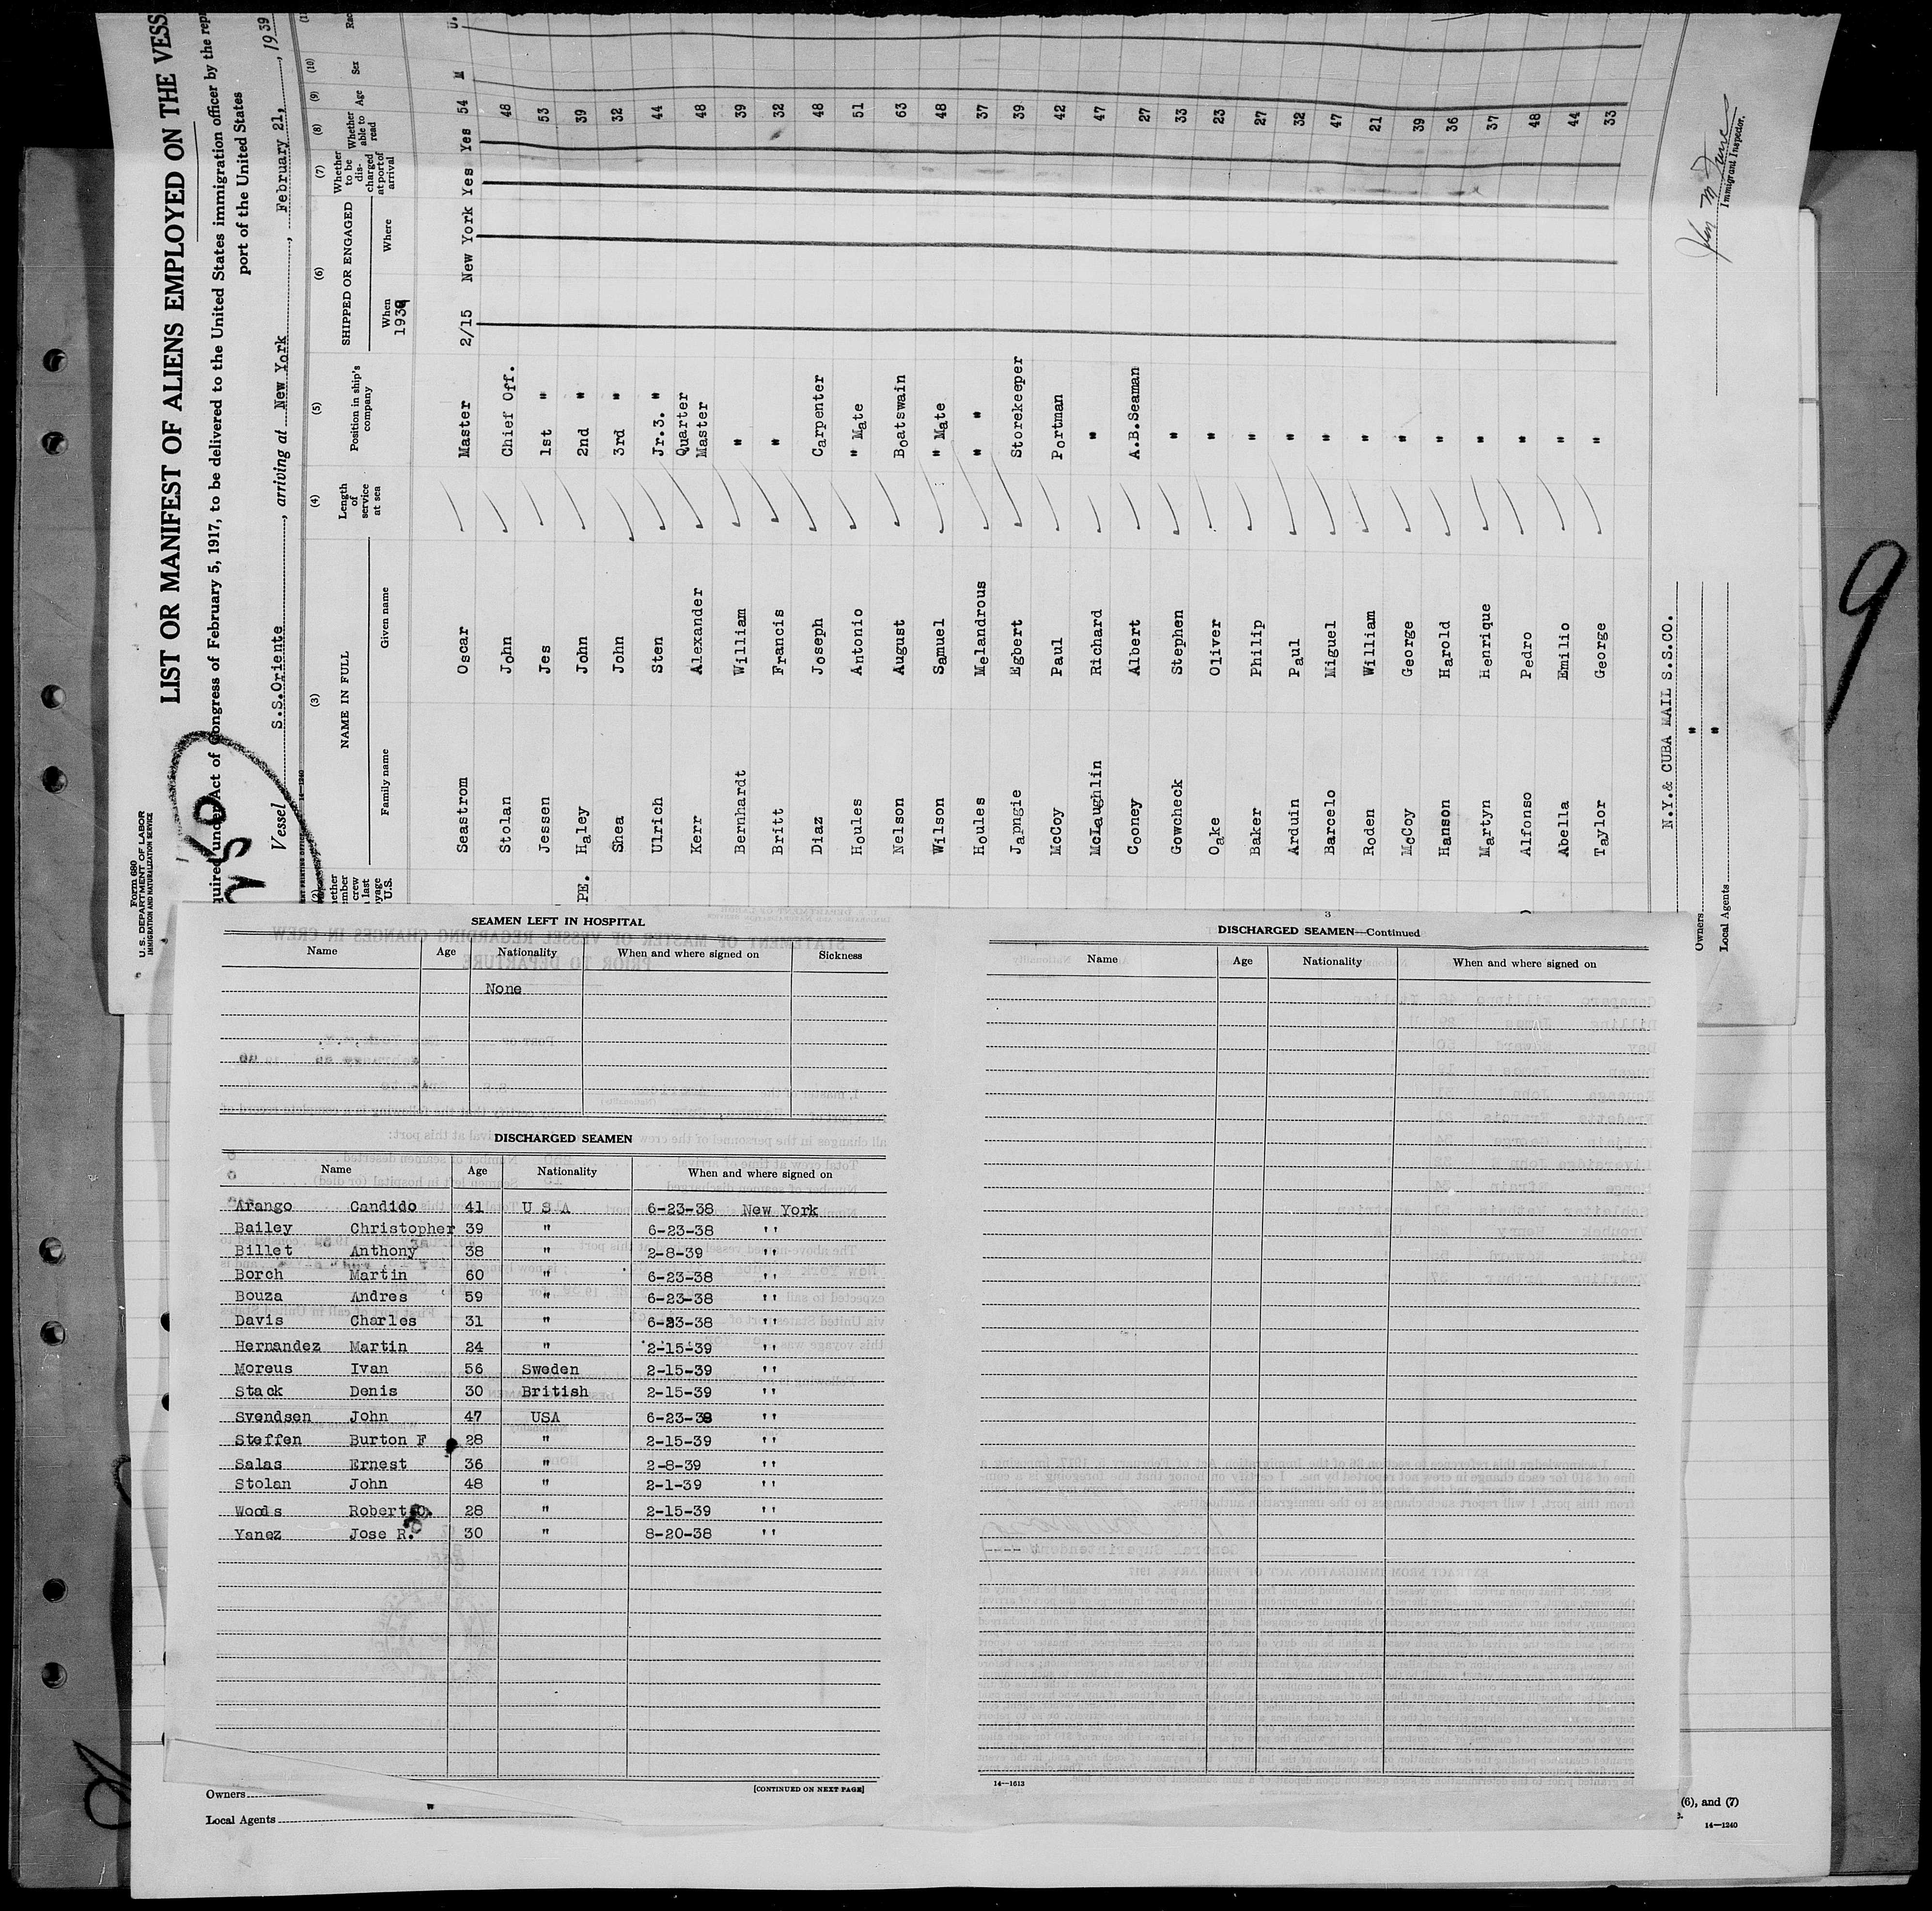 Form 680
U.S. DEPARTMENT OF LABOR
IMMIGRATION AND NATURALIZATION SERVICE
LIST OR MANIFEST OF ALIENS EMPLOYED ON THE VESS
quired under Act of Congress of February 5, 1917, to be delivered to the United States immigration officer by the rep
port of the United States
Vessel S.S.Oriente, arriving at New York, February 21, 1939
(2) (3) (4) (5) (6) (7) (8) (9) (10)
NAME IN FULL
Family name Given name
Length of service at sea
Position in ship's company
SHIPPED OR ENGAGED
When 1939 Where
Whether to be discharged at port of arrival
Whether able to read
Age
Sex
Seastrom Oscar Master 2/15 New York Yes Yes 54 M
Stolan John Chief Off. 48
Jessen Jes 1st " 53
PE. Haley John 2nd " 39
Shea John 3rd " 32
Ulrich Sten Jr.3. " 44
Kerr Alexander Quarter Master 48
Bernhardt William " 39
Britt Francis " 32
Diaz Joseph Carpenter 48
Houles Antonio " Mate 51
Nelson August Boatswain 63
Wilson Samuel " Mate 48
Houles Melandrous " " 37
Japngie Egbert Storekeeper 39
McCoy Paul Portman 42
McLaughlin Richard " 47
Cooney Albert A.B.Seaman 27
Gowcheck Stephen " 33
Oake Oliver " 23
Baker Philip " 27
Arduin Paul " 32
Barcelo Miguel " 47
Roden William " 21
McCoy George " 39
Hanson Harold " 36
Martyn Henrique " 37
Alfonso Pedro " 48
Abella Emilio " 44
Taylor George " 33
Owners N.Y.& CUBA MAIL S.S.CO.
Local Agents " "
Immigrant Inspector.
9
SEAMEN LEFT IN HOSPITAL
Name Age Nationality When and where signed on Sickness
None
DISCHARGED SEAMEN
Name Age Nationality When and where signed on
Arango Candido 41 U S A 6-23-38 New York
Bailey Christopher 39 " 6-23-38 ''
Billet Anthony 38 " 2-8-39 ''
Borch Martin 60 " 6-23-38 ''
Bouza Andres 59 " 6-23-38 ''
Davis Charles 31 " 6-23-38 ''
Hernandez Martin 24 " 2-15-39 ''
Moreus Ivan 56 Sweden 2-15-39 ''
Stack Denis 30 British 2-15-39 ''
Svendsen John 47 USA 6-23-38 ''
Steffen Burton F 28 " 2-15-39 ''
Salas Ernest 36 " 2-8-39 ''
Stolan John 48 " 2-1-39 ''
Woods Robert 28 " 2-15-39 ''
Yanez Jose R. 30 " 8-20-38 ''
[CONTINUED ON NEXT PAGE]
Owners
Local Agents "
3
DISCHARGED SEAMEN—Continued
Name Age Nationality When and where signed on
14—1613
(6), and (7)
14—1240